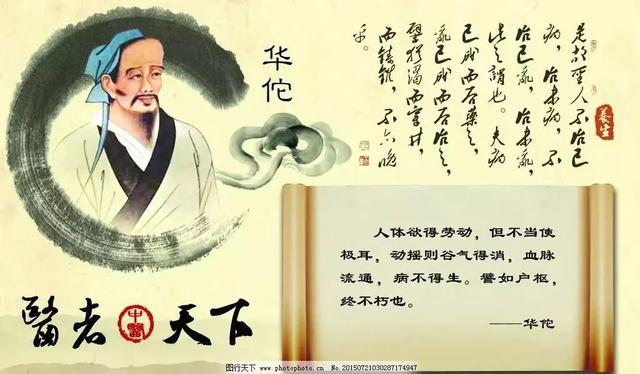 华佗
是故聖人不治已
病，治未病，不
治已亂，治未亂，
此之謂也。夫病
已成而后藥之，
亂已成而后治之，
譬猶渴而穿井，
而鑄錐，不亦晚
乎。
養生
人体欲得劳动，但不当使
极耳，动摇则谷气得消，血脉
流通，病不得生。譬如户枢，
终不朽也。
——华佗
醫者 中醫 天下
图行天下 www.photophoto.cn No.20150721030287174947